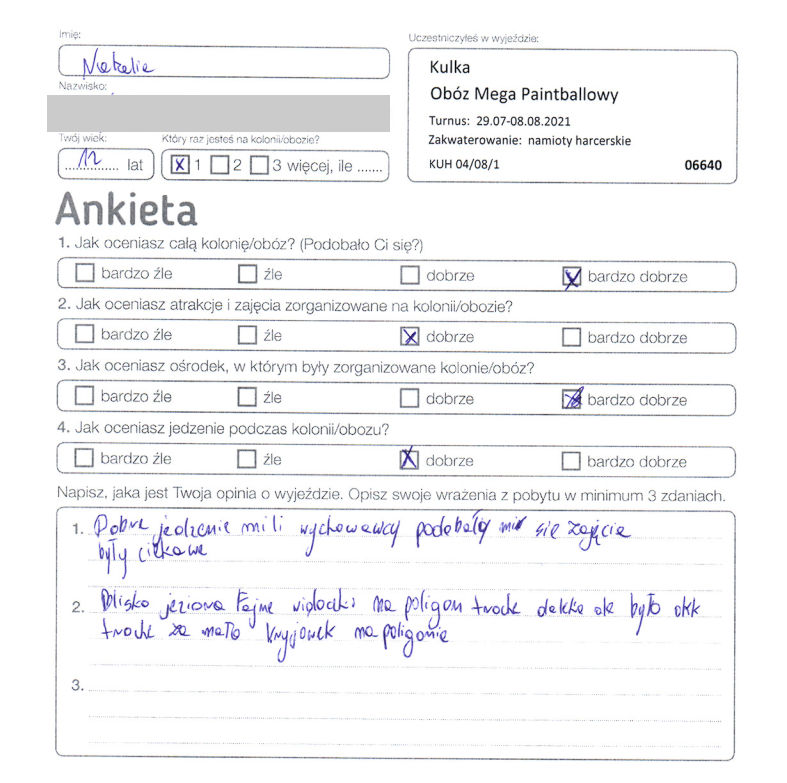 Imię:
Natalia
Nazwisko:
Uczestniczyłeś w wyjeździe:
Kulka
Obóz Mega Paintballowy
Turnus: 29.07-08.08.2021
Zakwaterowanie: namioty harcerskie
KUH 04/08/1 06640
Twój wiek:
12 lat
Który raz jesteś na kolonii/obozie?
X 1 2 3 więcej, ile .......
Ankieta
1. Jak oceniasz całą kolonię/obóz? (Podobało Ci się?)
bardzo źle źle dobrze X bardzo dobrze
2. Jak oceniasz atrakcje i zajęcia zorganizowane na kolonii/obozie?
bardzo źle źle X dobrze bardzo dobrze
3. Jak oceniasz ośrodek, w którym były zorganizowane kolonie/obóz?
bardzo źle źle dobrze X bardzo dobrze
4. Jak oceniasz jedzenie podczas kolonii/obozu?
bardzo źle źle X dobrze bardzo dobrze
Napisz, jaka jest Twoja opinia o wyjeździe. Opisz swoje wrażenia z pobytu w minimum 3 zdaniach.
1. Dobre jedzenie mili wychowawcy podobały mi się zajęcia
były ciekawe
2. Blisko jeziora fajne widoczki na poligon troche daleko ale było okk
troche za mało kryjowek na poligonie
3.